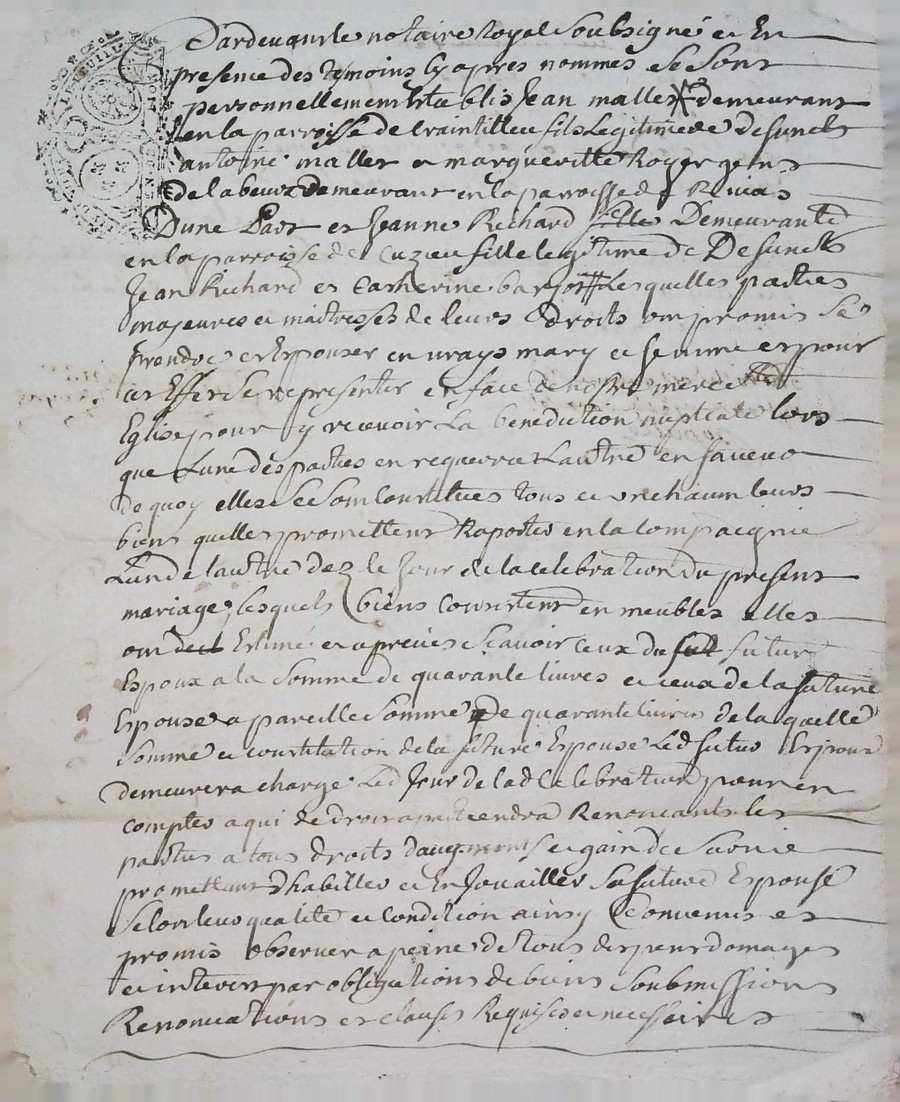 Pardevant le notaire Royal soubsigné et En
presence des temoins cy apres nommés se sont
personnellement Establis Jean maller demeurant
en la parroisse de Craintilleu fils legitime de defunct
antoine maller et margueritte Royer gens
de labeur demeurant en la parroisse de Rivas
Dune Part et Jeanne Richard fille Demeurante
en la parroisse de Cuzieu fille legitime de Defunct
Jean Richard et Catherine barjot lesquelles parties
majeures et maitresses de leurs droits ont promis se
prendre et Epouser en vrays mary et femme et pour
cet Effet se representer en face de nostre mere Ste
Eglise pour y recevoir La benediction nuptiale lors
que Lune des parties en requerra Lautre en faveur
de quoy elles se sont Constitués tous et un chacun leurs
biens quelles promettent Raporter en la Compaignie
Lun de lautre dez le Jour de la celebration du present
mariage, lesquels biens Consistent en meubles elles
ont Estimé et apreciés scavoir Ceux du fut futur
Espoux a la somme de quarante livres et ceux de la future
Epouse a pareille somme de quarante livres de laquelle
somme et constitution de la future Epouse Led futur Epoux
demeurera chargé Led Jour de lad Celebration pour en
compter a qui de droit apartiendra Renoncants les
parties a tous droits daugment et gain de survie
promettant dhabiller et Enjouailler sa future Epouse
selon leur qualité et Condition ainsy Convenus et
promis observer a peine de tous depens domages
et interest par obligations de biens soubmissions
Renonciations et clauses Requises et necessaires